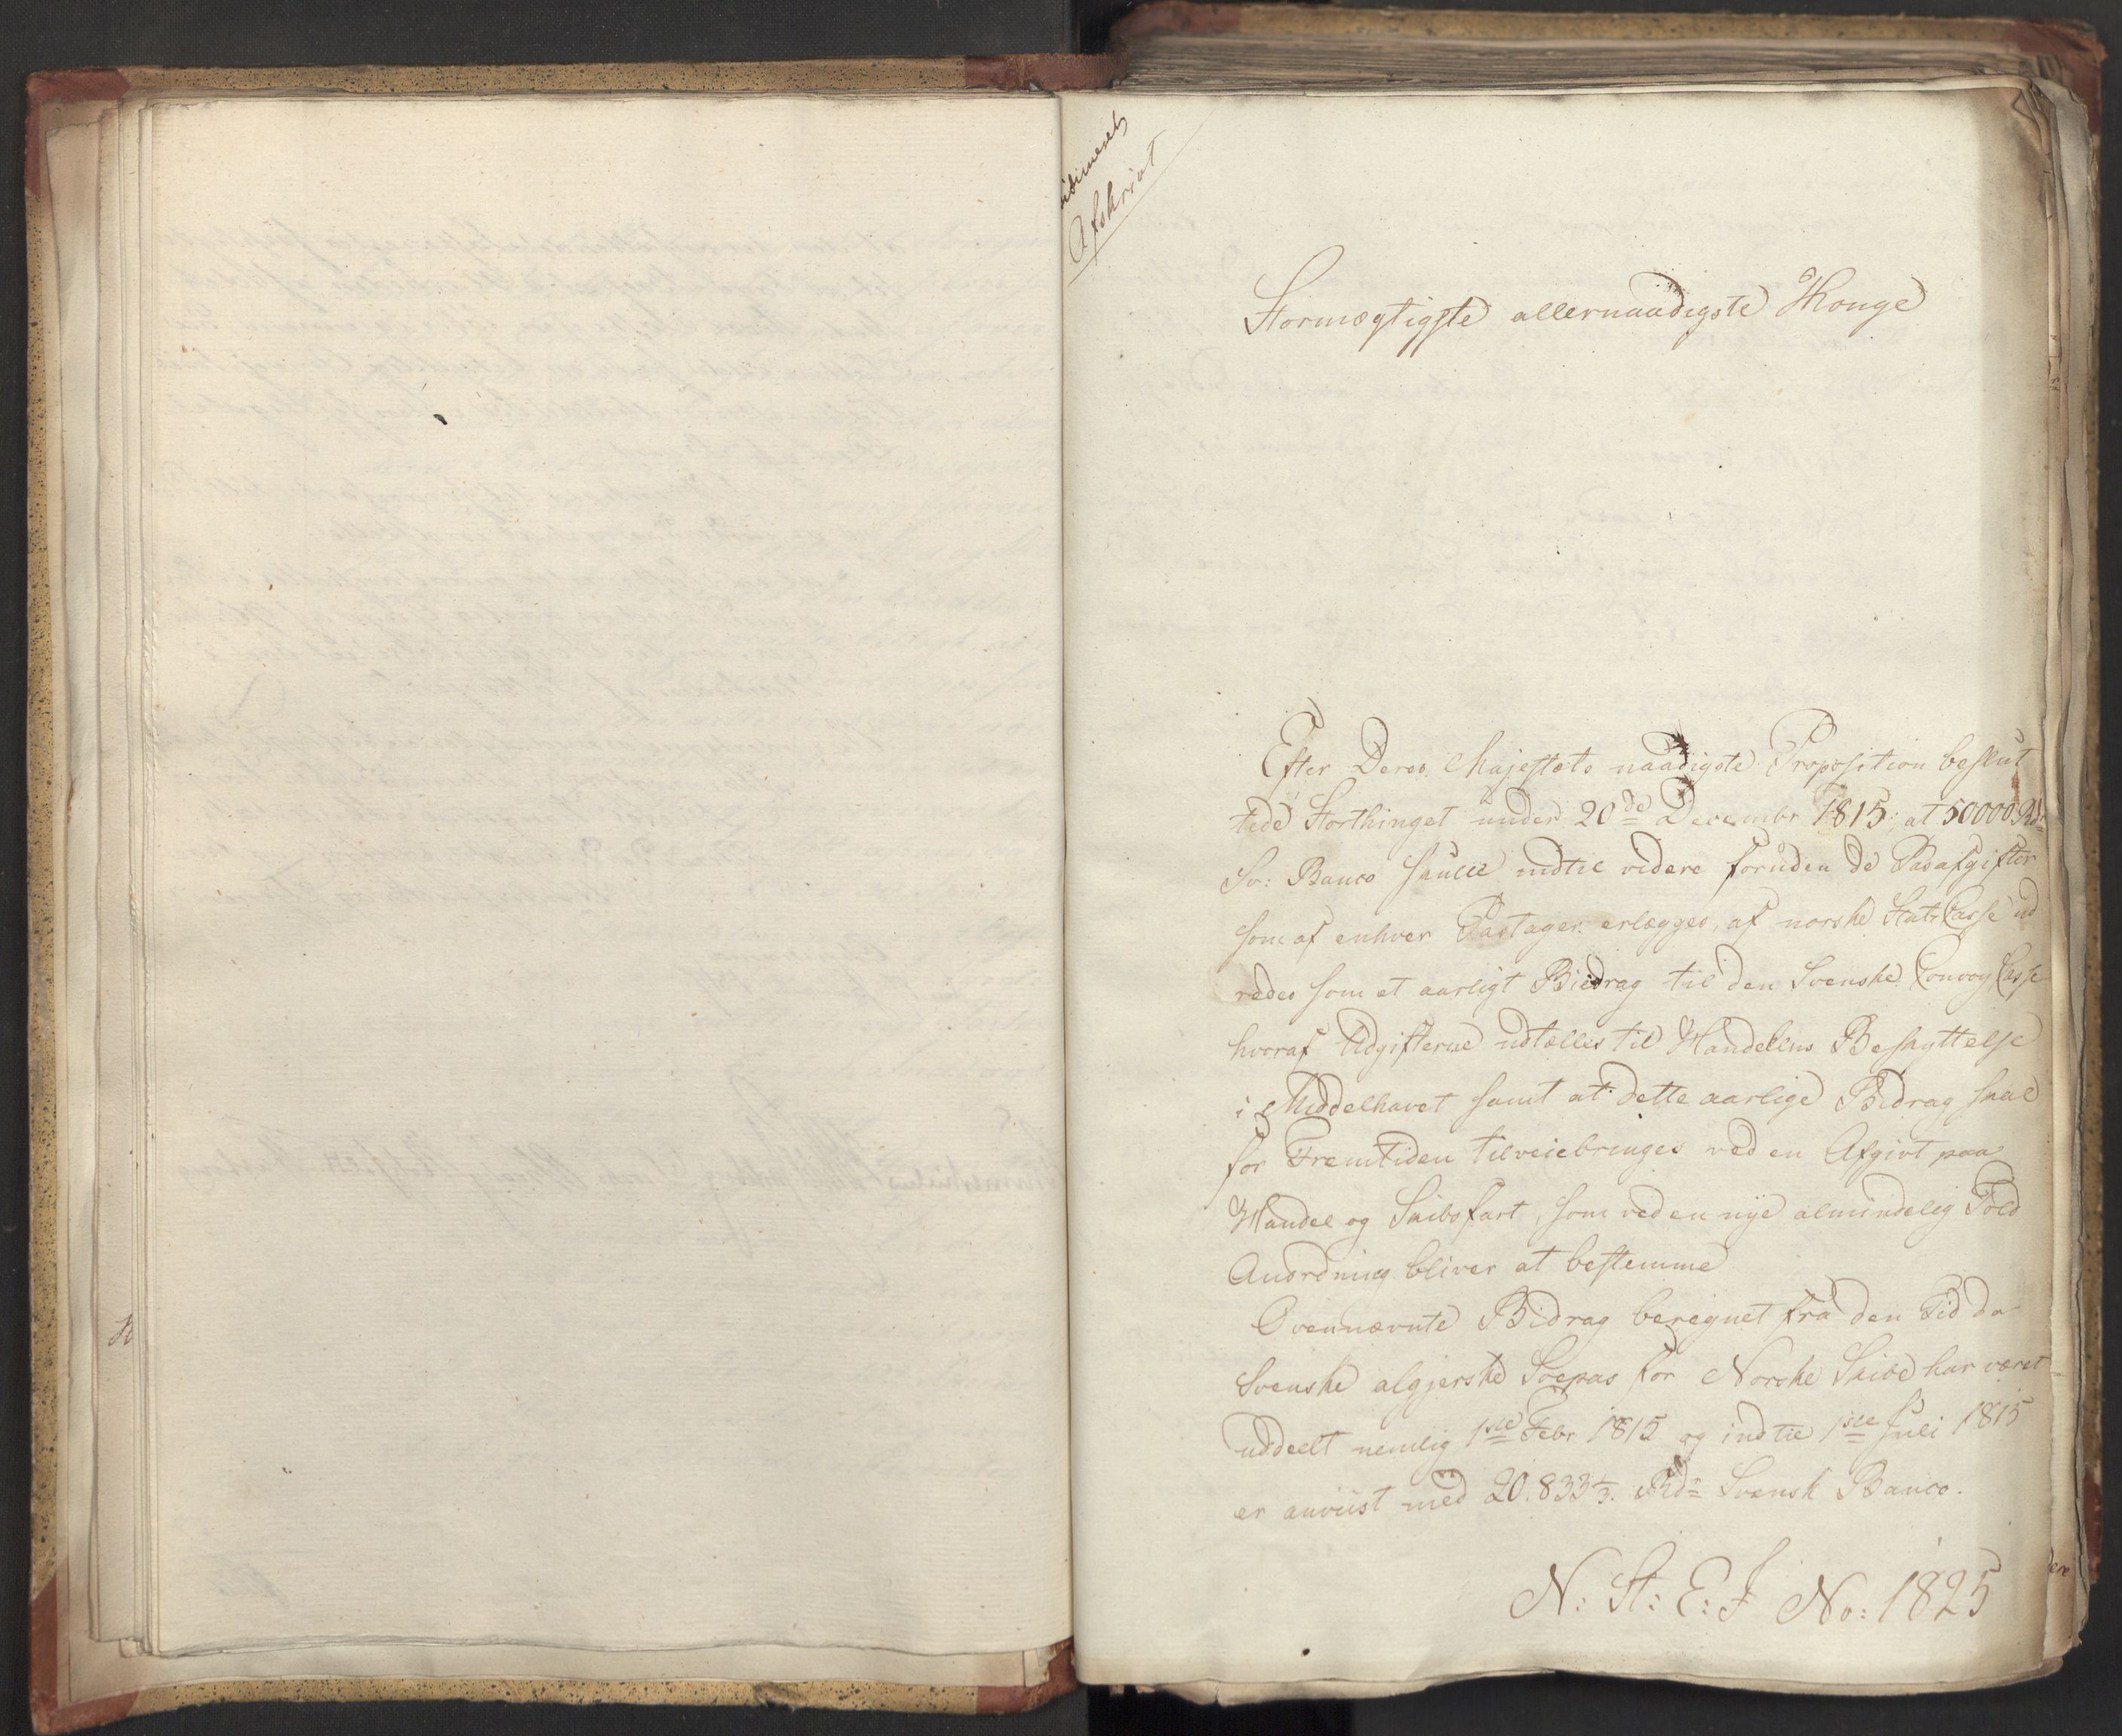 Afskrivt
Stormægtigste allernaadigste Konge
Efter Deres Majestæts naadigste Proposition beslut
tede Storthinget under 20de Decembr 1815: at 50000 Rd:
Sv: Banco skulle indtil videre foruden de Pasafgifter
som af enhver Pastager erlægges, af norske Stats Casse ud
redes som et aarligt Biedrag til den Svenske Convoy Casse
hvoraf Udgifterne udtælles til Handelens Beskyttelse
i Middelhavet samt at dette aarlige Bidrag skal
for Fremtiden tilveiebringes ved en Afgivt paa
Handel og Skibsfart, som ved en nye almindelig Told
Anordning bliver at bestemme
Ovennævnte Bidrag beregnet fra den Tid da
Svenske algjerske Søepas for Norske Skibe har været
uddeelt nemlig 1ste Febr 1815 og indtil 1ste Juli 1815
er anviist med 20.833⅓. Rdr Svensk Banco.
N: St: E: J No: 1825